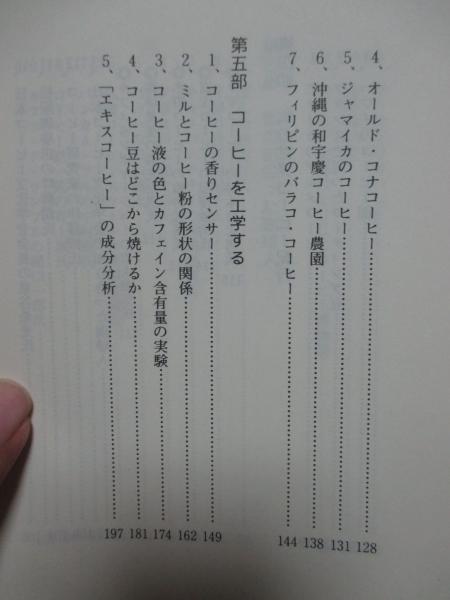 4、オールド・コナコーヒー……………………128
5、ジャマイカのコーヒー……………………131
6、沖縄の和宇慶コーヒー農園……………………138
7、フィリピンのバラコ・コーヒー……………………144
第五部 コーヒーを工学する
1、コーヒーの香りセンサー……………………149
2、ミルとコーヒー粉の形状の関係……………………162
3、コーヒー液の色とカフェイン含有量の実験……………………174
4、コーヒー豆はどこから焼けるか……………………181
5、「エキスコーヒー」の成分分析……………………197